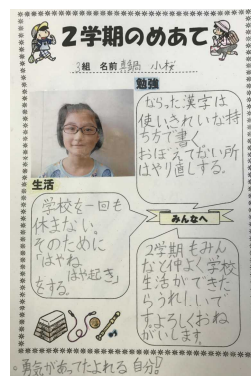 2学期のめあて
組 名前 真鍋 小桜
勉強
ならった漢字は
使いきれいな持
ちで書く
おぼえてない所
はやり直しする。
生活
学校を一回も
休まない。
そのために
「はやね
はや起き」
をする。
みんなへ
2学期もみん
なと仲よく学校
生活ができた
らうれしいで
す。よろしくおね
がいします。
勇気があってたよれる自分!